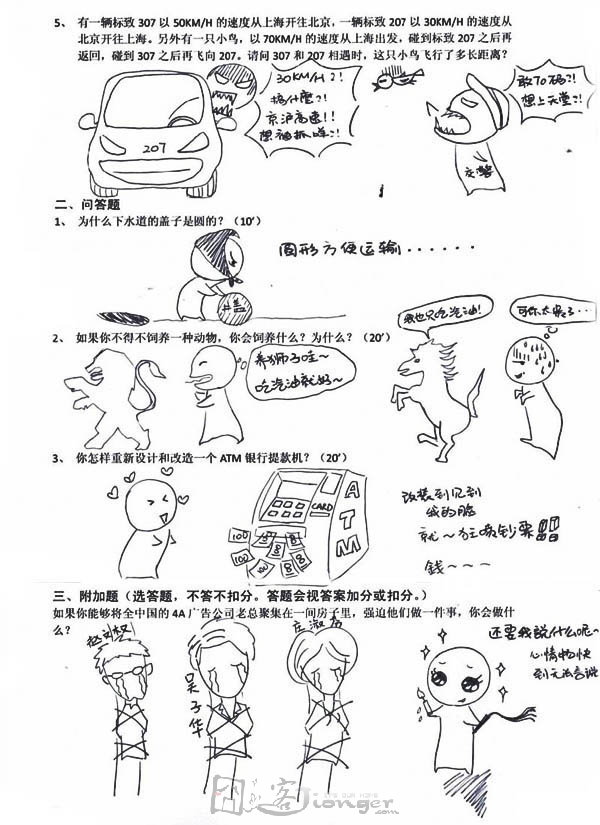 5、 有一辆标致 307 以 50KM/H 的速度从上海开往北京，一辆标致 207 以 30KM/H 的速度从
北京开往上海。另外有一只小鸟，以 70KM/H 的速度从上海出发，碰到标致 207 之后再
返回，碰到 307 之后再飞向 207。请问 307 和 207 相遇时，这只小鸟飞行了多长距离？
30KM/H?!
搞什麼?!
京沪高速!!
想被抓咩?!
敢70码?!
想上天堂?!
207
交警
二、问答题
1、 为什么下水道的盖子是圆的？（10'）
圆形方便运输······
井盖
2、 如果你不得不饲养一种动物，你会饲养什么？为什么？（20'）
养狮子哇~
吃汽油就好~
我也只吃汽油!
可你太贵了···
3、 你怎样重新设计和改造一个 ATM 银行提款机？（20'）
CARD
ATM
100
100
改装到见到
我的脸
就~狂喷钞票!!!
錢~~~
三、附加题（选答题，不答不扣分。答题会视答案加分或扣分。）
如果你能够将全中国的 4A 广告公司老总聚集在一间房子里，强迫他们做一件事，你会做什
么？
庄淑芬
吴子华
还要我說什么呢~
心情愉快
到无法言说
Jionger.com